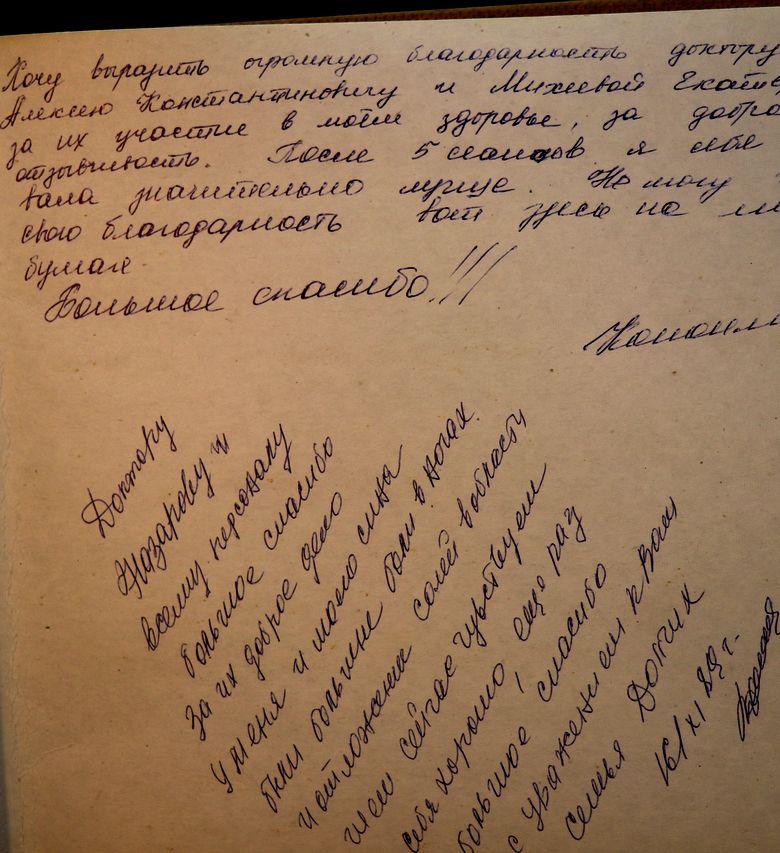 Хочу выразить огромную благодарность доктору
Алексею Константиновичу и Михеевой Екате
за их участие в моём здоровье, за добро
отзывчивость. После 5 сеансов я себя
вала значительно лучше. Не могу
свою благодарность вот здесь на
бумаге.
Большое спасибо!!!
Доктору
Назарову и
всему персоналу
большое спасибо
За их доброе дело
У меня и моего сына
были большие боли в ногах
и отложение солей в области
шеи сейчас чувствуем
себя хорошо, еще раз
большое спасибо
с уважением к Вам
семья Доник
16/XI 89 г.